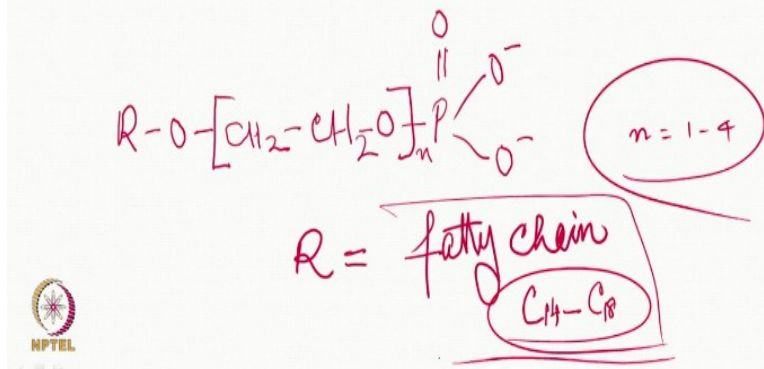 O
||
R-O-[CH2-CH2O]n-P
O-
O-
n = 1-4
R = fatty chain
C14-C18
NPTEL